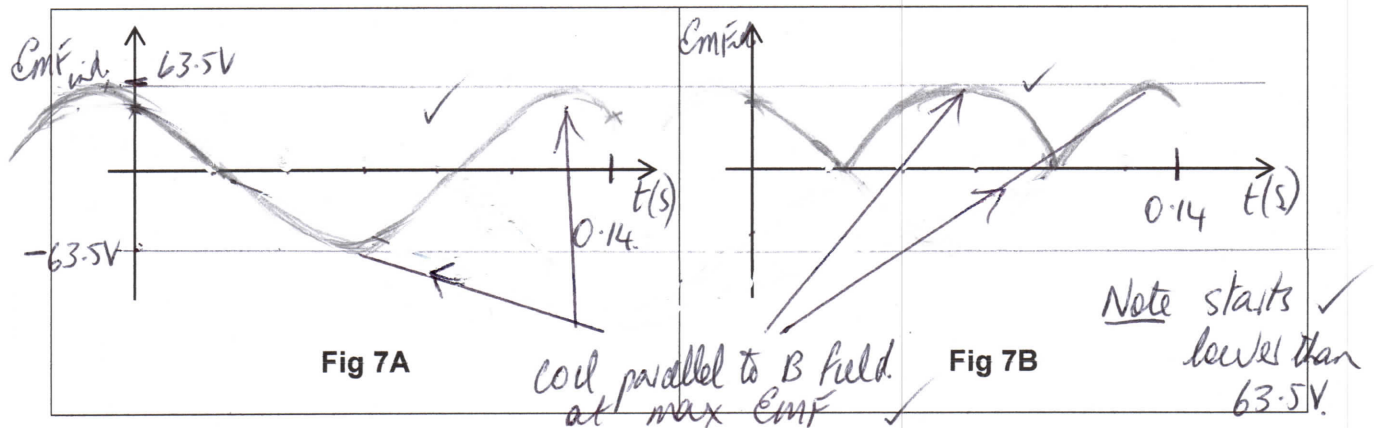 Emf ind.
63.5V
-63.5V
t(s)
0.14.
Fig 7A
Emf
0.14
t(s)
Fig 7B
coil parallel to B field.
at max EMF
Note starts
lower than
63.5V.